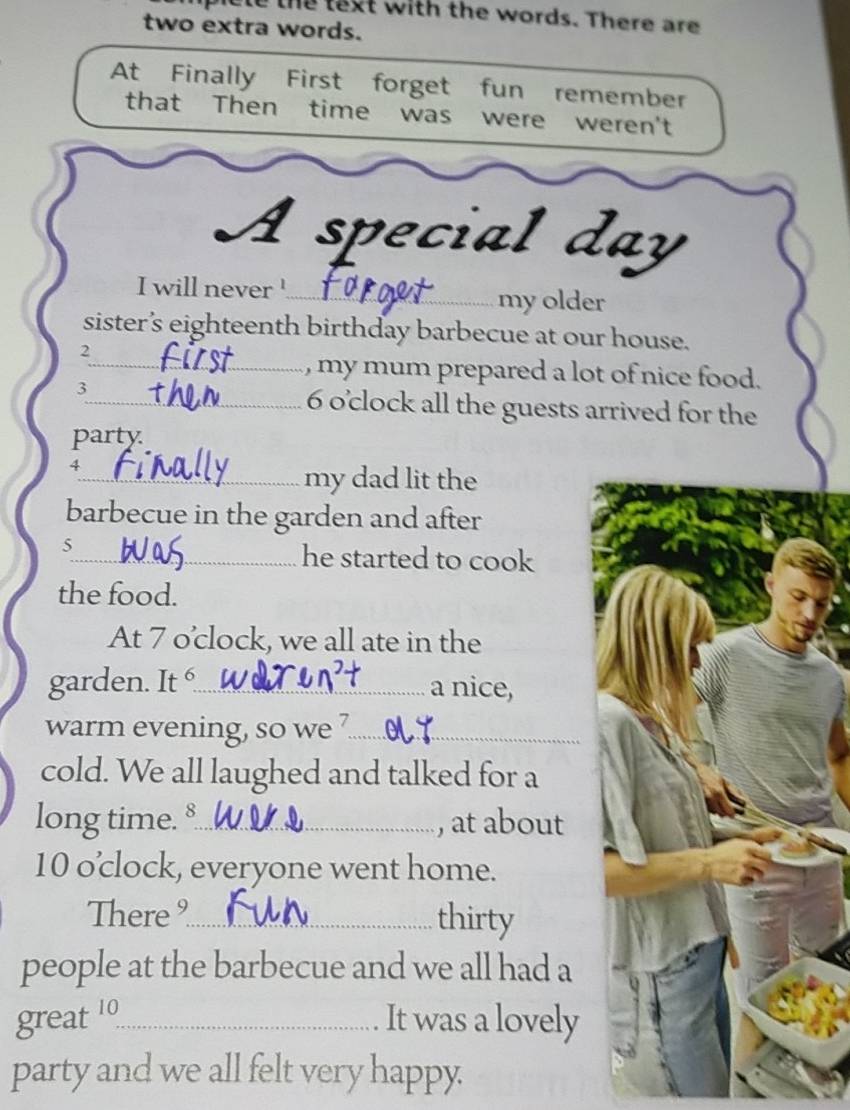 the text with the words. There are
two extra words.
At Finally First forget fun remember
that Then time was were weren't
A special day
I will never 1 forget my older
sister's eighteenth birthday barbecue at our house.
2 first, my mum prepared a lot of nice food.
3 then 6 o'clock all the guests arrived for the
party.
4 finally my dad lit the
barbecue in the garden and after
5 was he started to cook
the food.
At 7 o'clock, we all ate in the
garden. It 6 weren't a nice,
warm evening, so we 7 at
cold. We all laughed and talked for a
long time. 8 were, at about
10 o'clock, everyone went home.
There 9 fun thirty
people at the barbecue and we all had a
great 10. It was a lovely
party and we all felt very happy.